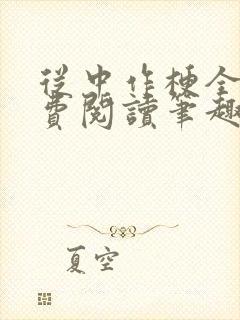 從中作梗全
費閱讀筆趣
夏空